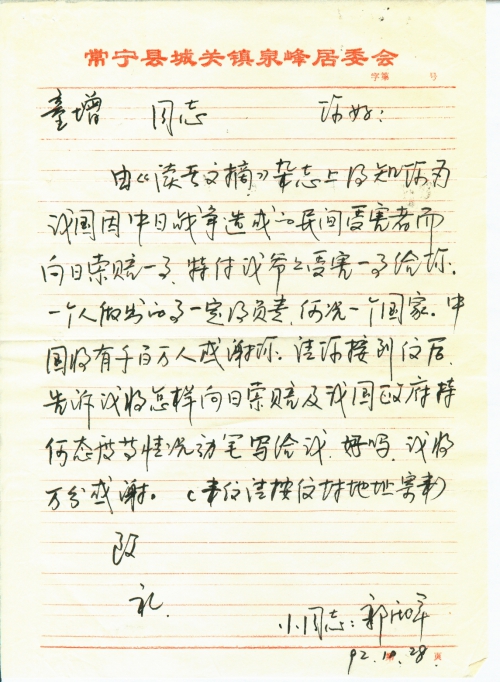 常宁县城关镇泉峰居委会
字第 号
童增 同志 你好:
由《读者文摘》杂志上得知你为
我国因中日战争造成的民间受害者而
向日索赔一事,特付我爷爷受害一事给你.
一个人做出的事一定得负责,何况一个国家。中
国将有千百万人感谢你。请你接到信后,
告诉我将怎样向日索赔及我国政府持
何态度等情况动笔写给我,好吗,我将
万分感谢。(来信请按信封地址寄来)
致
礼.
小同志:郭
92.10.28.
页